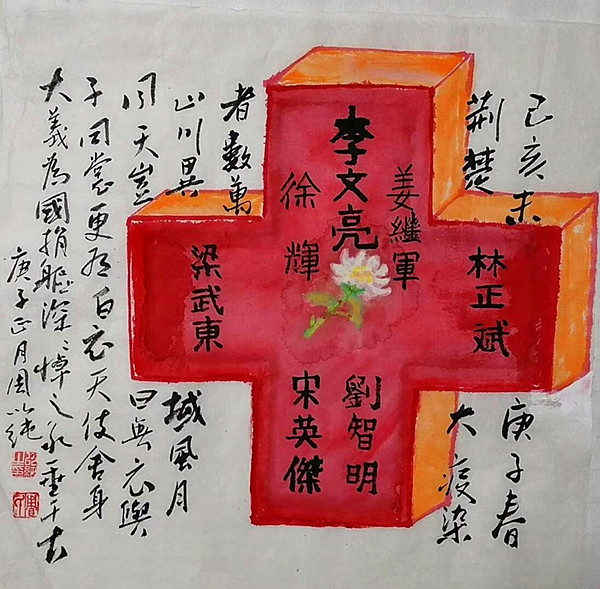 己亥末
庚子春
荆楚
大疫染
者數萬
山川異
域風月
同天豈
曰無衣與
子同裳更有白衣天使舍身
大義為國捐軀深々悼之永垂千古
庚子正月周
林正斌
姜繼軍
李文亮
徐輝
梁武東
劉智明
宋英傑